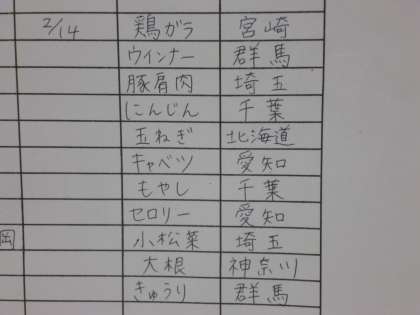 2/14 鶏ガラ 宮崎
ウインナー 群馬
豚肩肉 埼玉
にんじん 千葉
玉ねぎ 北海道
キャベツ 愛知
もやし 千葉
セロリー 愛知
岡 小松菜 埼玉
大根 神奈川
きゅうり 群馬